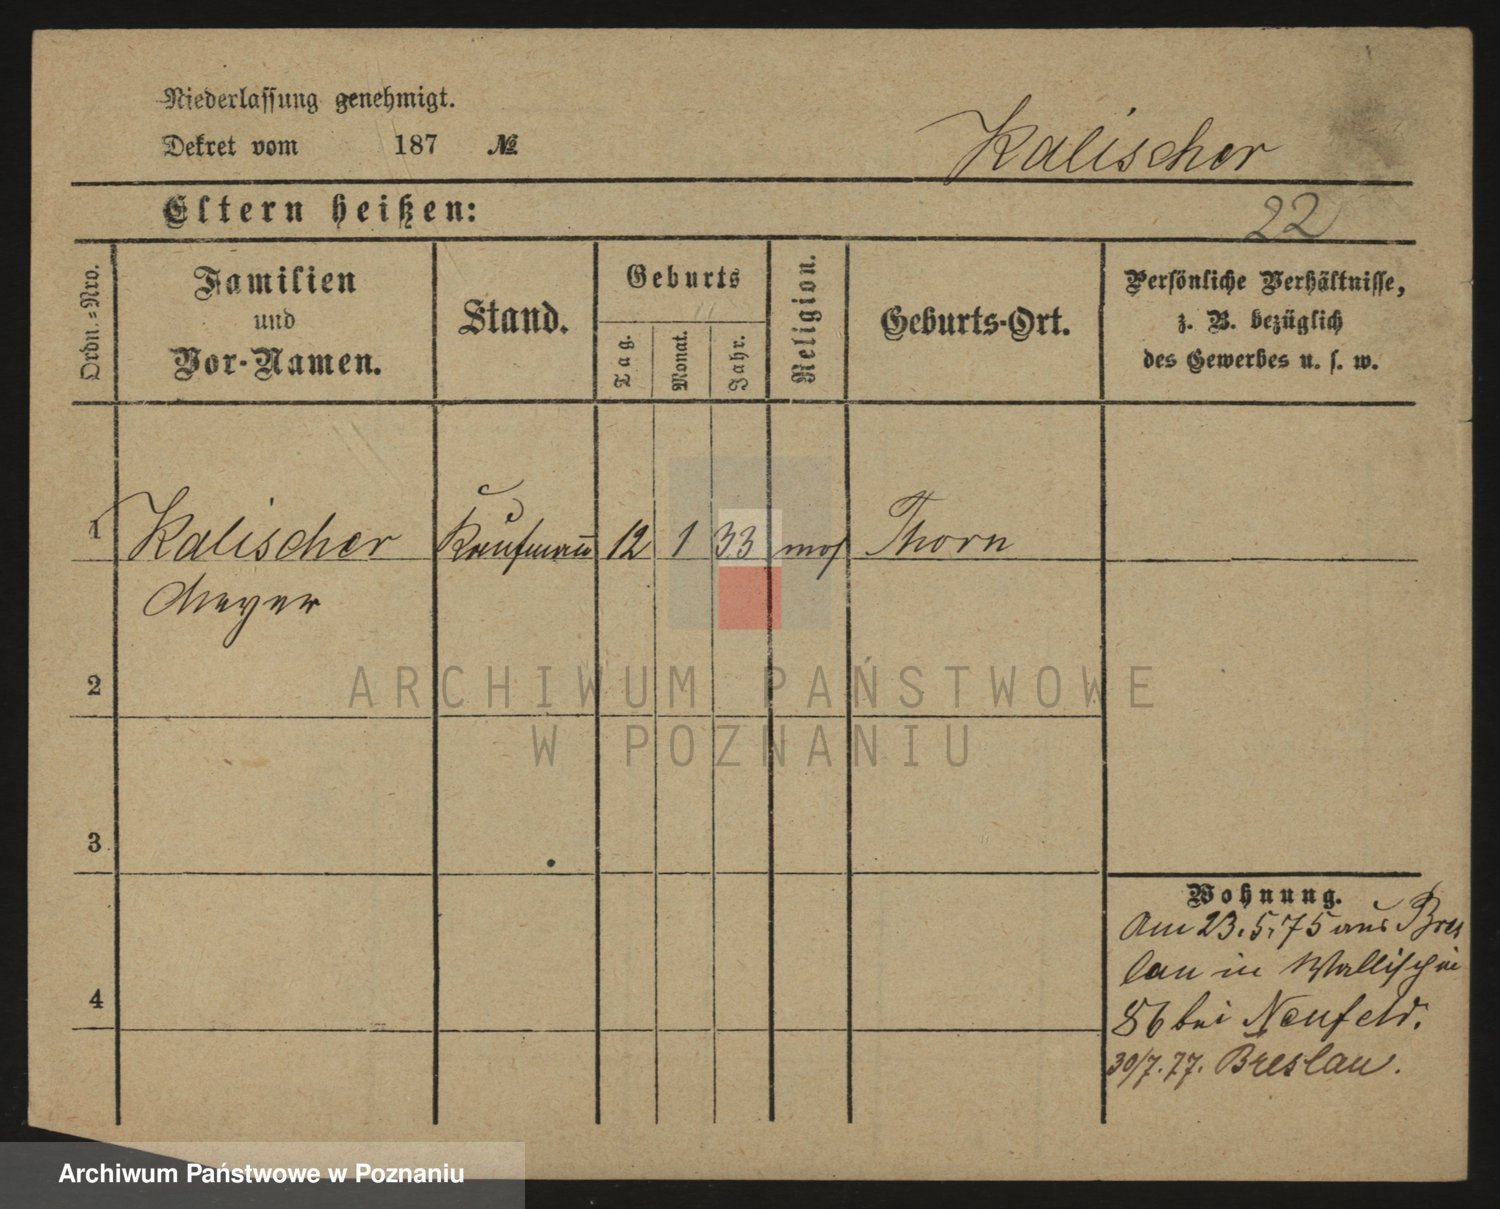 Niederlassung genehmigt.
Dekret vom 187 №
Kalischer
Eltern heißen:
22
Ordn.=Nro.
Familien
und
Vor-Namen.
Stand.
Geburts
Tag.
Monat.
Jahr.
Religion.
Geburts-Ort.
Persönliche Verhältnisse,
z. B. bezüglich
des Gewerbes u. s. w.
1 Kalischer Kaufmann 12 1 33 mos Thorn
Meyer
ARCHIWUM PAŃSTWOWE
W POZNANIU
2
3
4
Wohnung.
Am 23.5.75 aus Bres
lau in Wallischei
86 bei Neufeld.
30/7.77. Breslau.
Archiwum Państwowe w Poznaniu